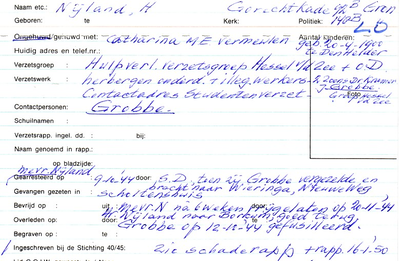 Naam etc.: Nijland, H Gerechtkade 47B Gron
Geboren: te Kerk: Politiek: 140B
20
Ongehuwd/gehuwd met: Catharina M E Vermeulen Aantal kinderen:
geb. 20-4-1900
Huidig adres en telef.nr.: te Den Helder
Verzetsgroep : Hulpverl. verzetsgroep Hessel v/d Zee + O.D.
Verzetswerk : herbergen onderd. + illeg. werkers
Contactadres Studentenverzet
Contactpersonen: Grobbe.
Schuilnaam :
Verzetsrapp. ingel. dd. : bij:
Naam genoemd in rapp.:
op bladzijde:
mevr. Nijland
Gearresteerd op : 9-12-'44 door: S.D., tien zij Grobbe vergezelde en
bracht naar Wieringa, Nieuweweg
Gevangen gezeten in : Scholtenshuis
Bevrijd op : uit: mevr. N na 6 weken vrijgelaten op 20-11-'44
Overleden op: door: H. Nijland naar Borkum, goed terug,
Begraven op : te: Grobbe op 12-12-'44 gefusilleerd.
Ingeschreven bij de Stichting 40/45: zie schaderapp + rapp. 16-1-'50